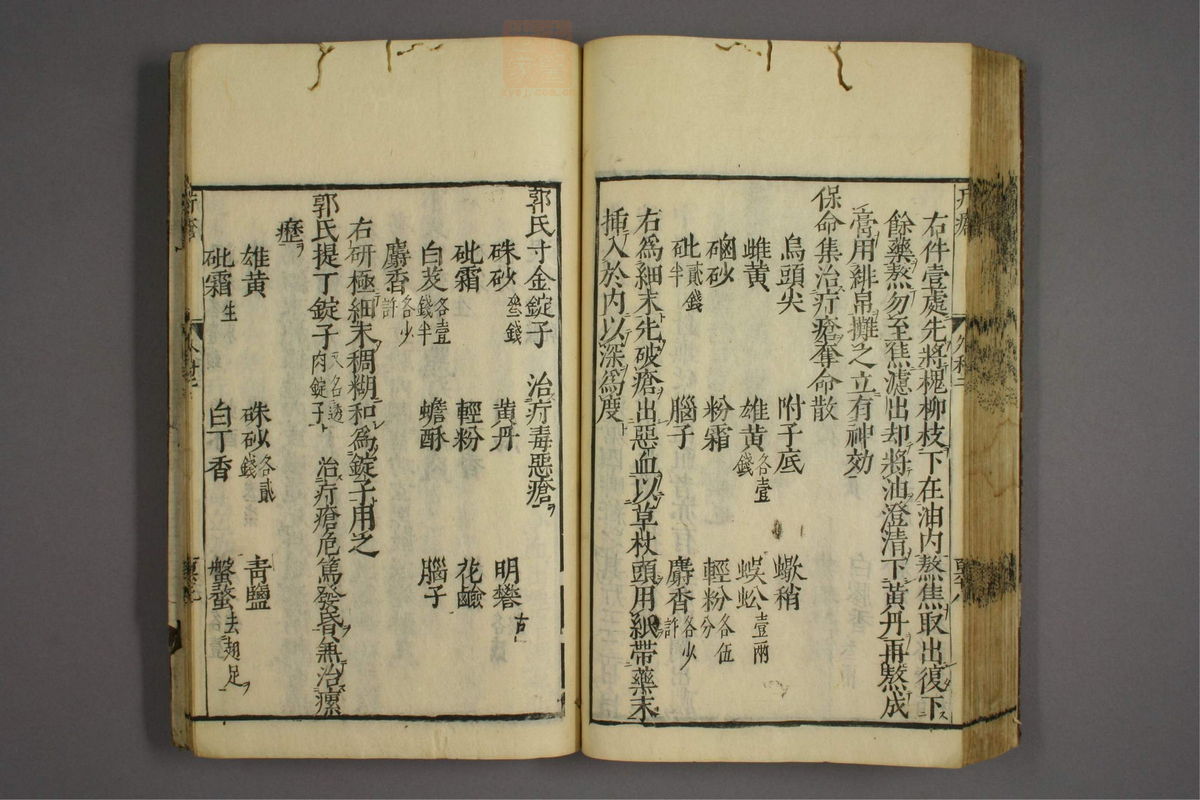 右件壹處先將槐柳枝下在油内熬焦取出復下
餘藥熬勿至焦濾出却將油澄清下黄丹再熬成
膏用緋帛攤之立有神効
保命集治疔瘡奪命散
烏頭尖 附子底 蠍稍
雌黄 雄黄各壹錢 蜈蚣壹兩
硇砂 粉霜 輕粉各伍分
砒貳錢半 腦子 麝香各少許
右為細末先破瘡出惡血以草杖頭用紙帶藥末
挿入於内以深為度
郭氏寸金錠子 治疔毒惡瘡ヲ
硃砂叁錢 黄丹 明礬古
砒霜 輕粉 花鹼
白芨各壹錢半 蟾酥 腦子
麝香各少許
右研極細末稠糊和為錠子用之
郭氏提丁錠子又名透肉錠子 治疔瘡危篤發昏無治瘰
癧ヲ
雄黄 硃砂各貳錢 靑鹽
砒霜生 白丁香 螌蝥去翅足ヲ